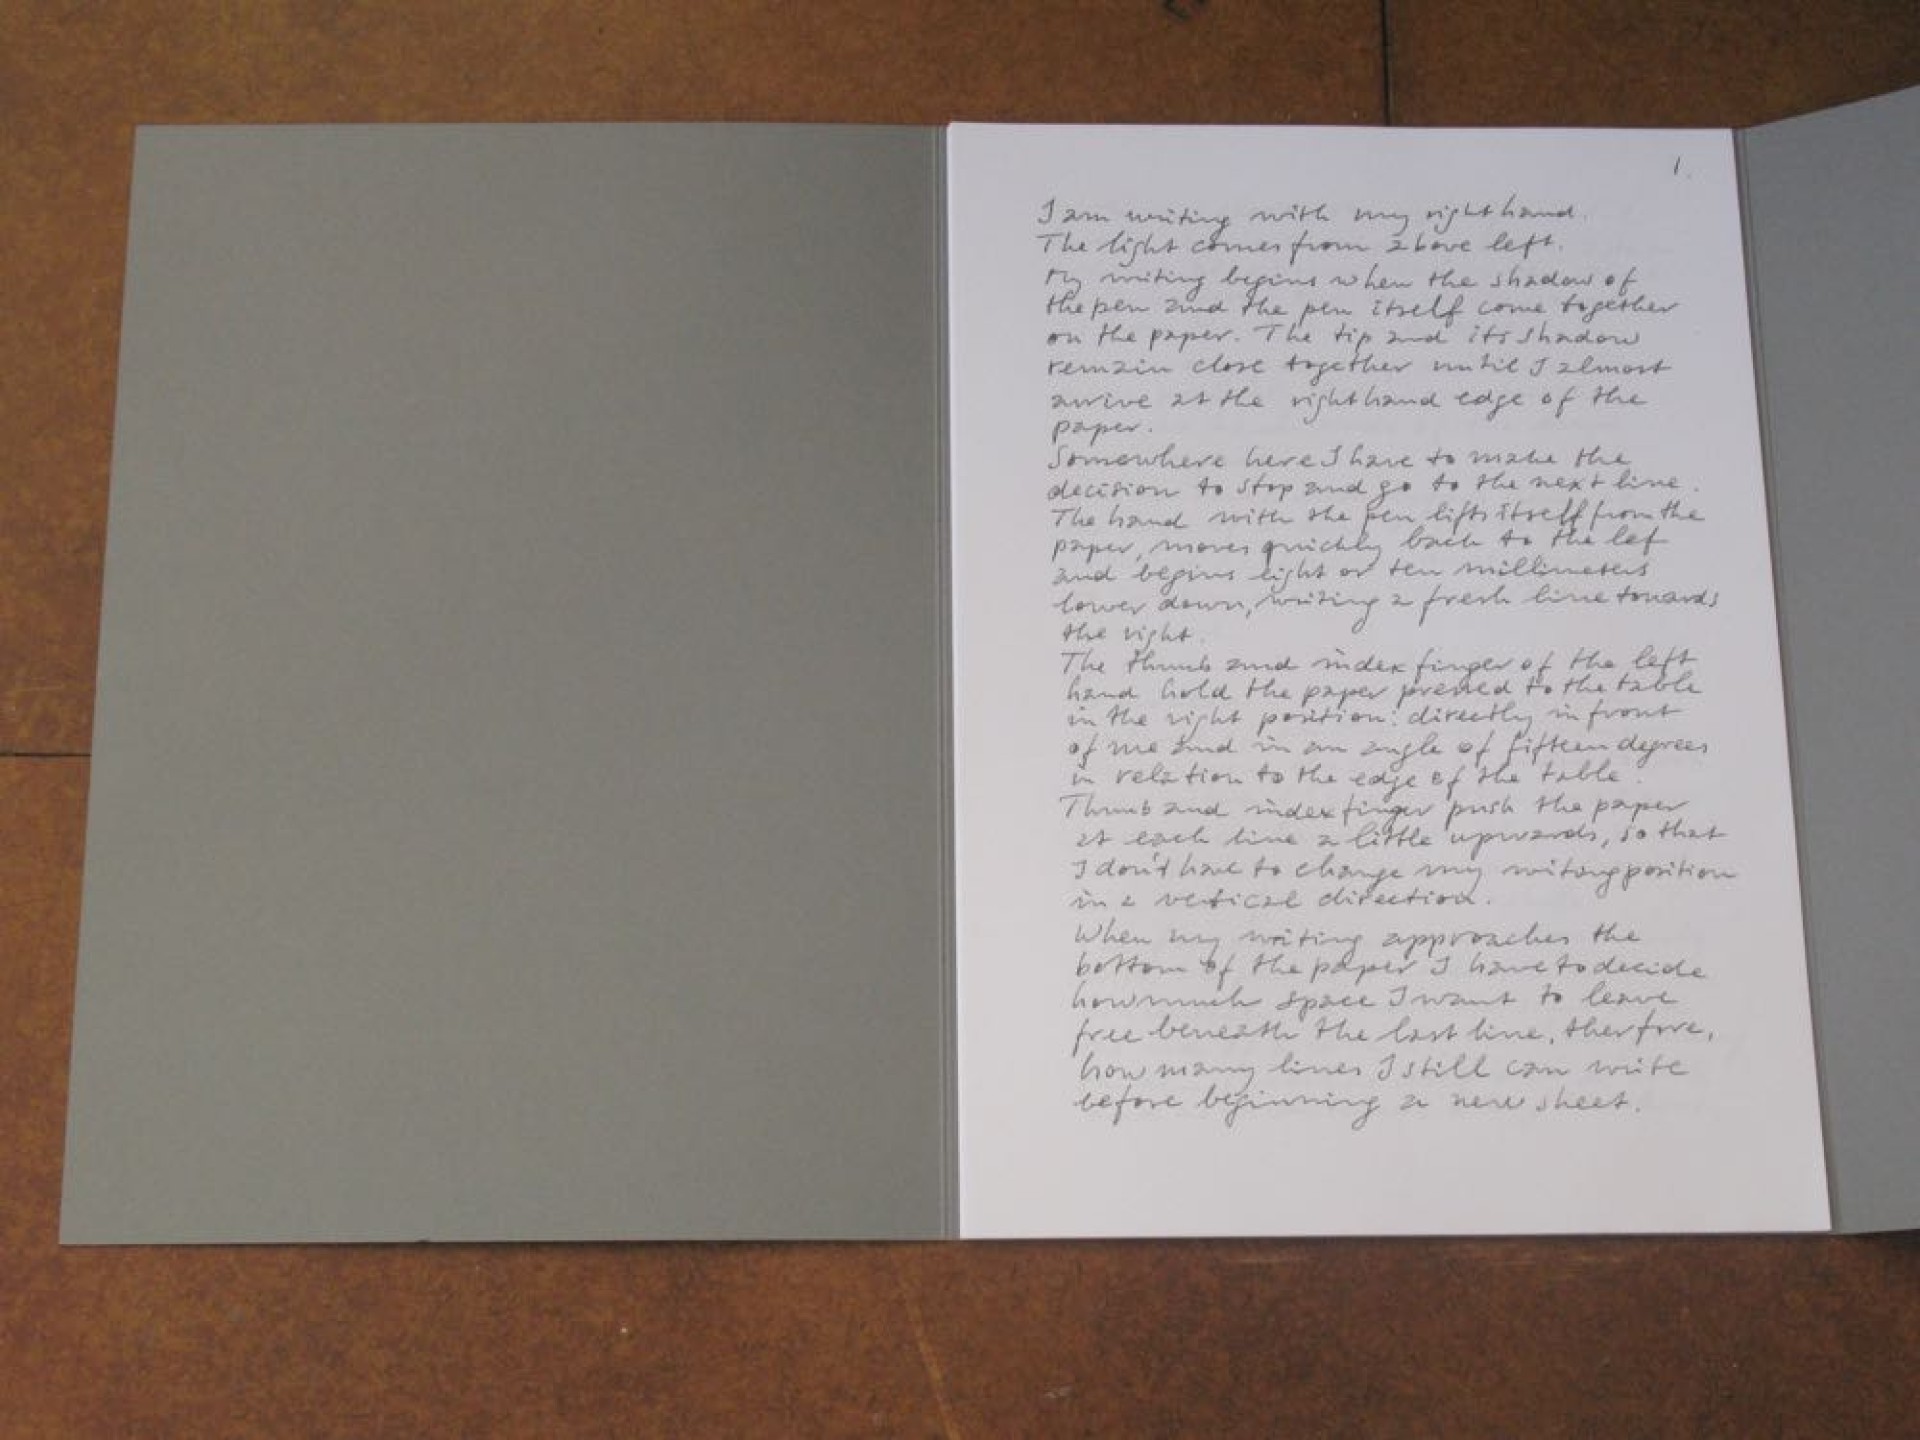 1.
I am writing with my right hand.
The light comes from above left.
My writing begins when the shadow of
the pen and the pen itself come together
on the paper. The tip and its shadow
remain close together until I almost
arrive at the right hand edge of the
paper.
Somewhere here I have to make the
decision to stop and go to the next line.
The hand with the pen lifts itself from the
paper, moves quickly back to the lef
and begins eight or ten millimeters
lower down, writing a fresh line towards
the right.
The thumb and index finger of the left
hand hold the paper pressed to the table
in the right position: directly in front
of me and in an angle of fifteen degrees
in relation to the edge of the table.
Thumb and index finger push the paper
at each line a little upwards, so that
I don't have to change my writing position
in a vertical direction.
When my writing approaches the
bottom of the paper I have to decide
how much space I want to leave
free beneath the last line, therfore,
how many lines I still can write
before beginning a new sheet.